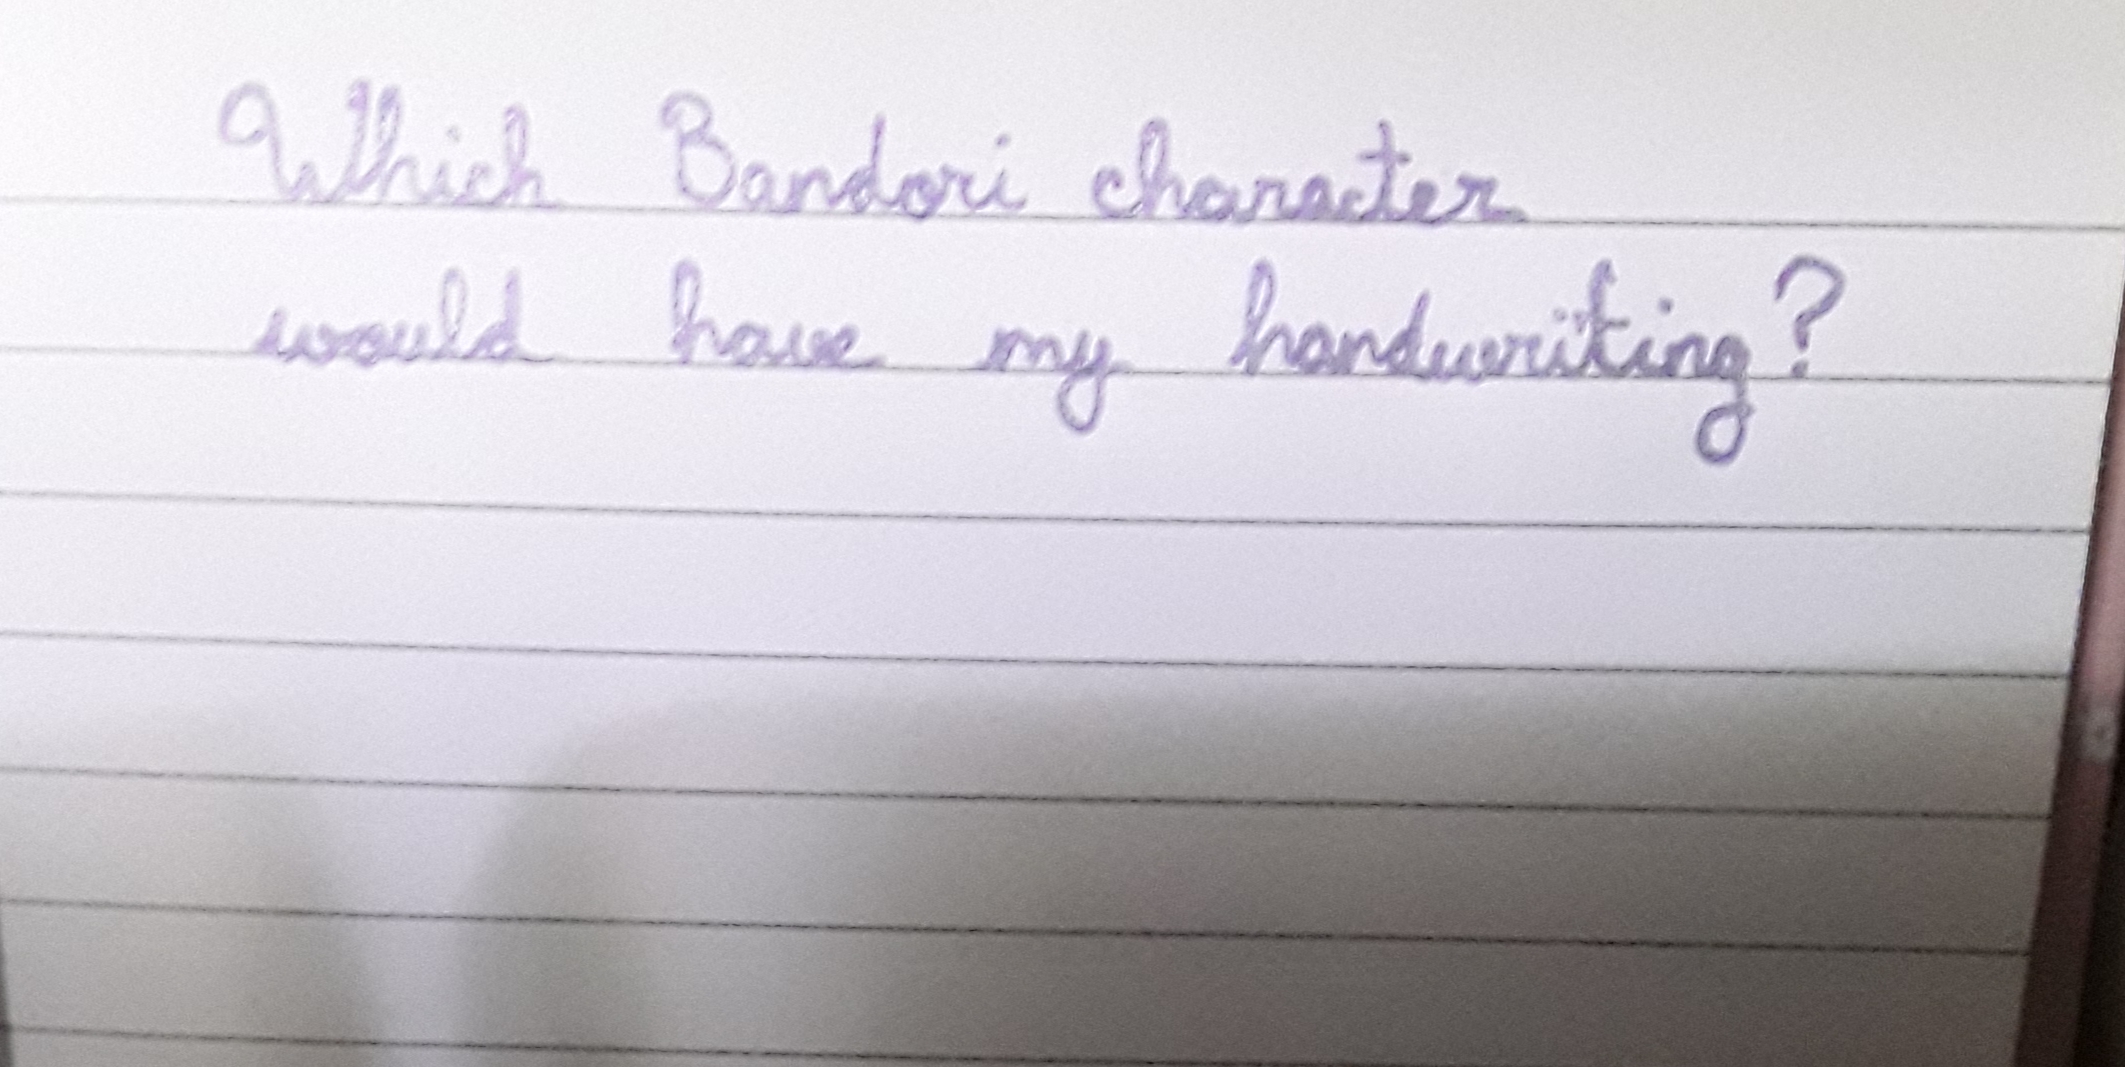 Which Bandori character
would have my handwriting?